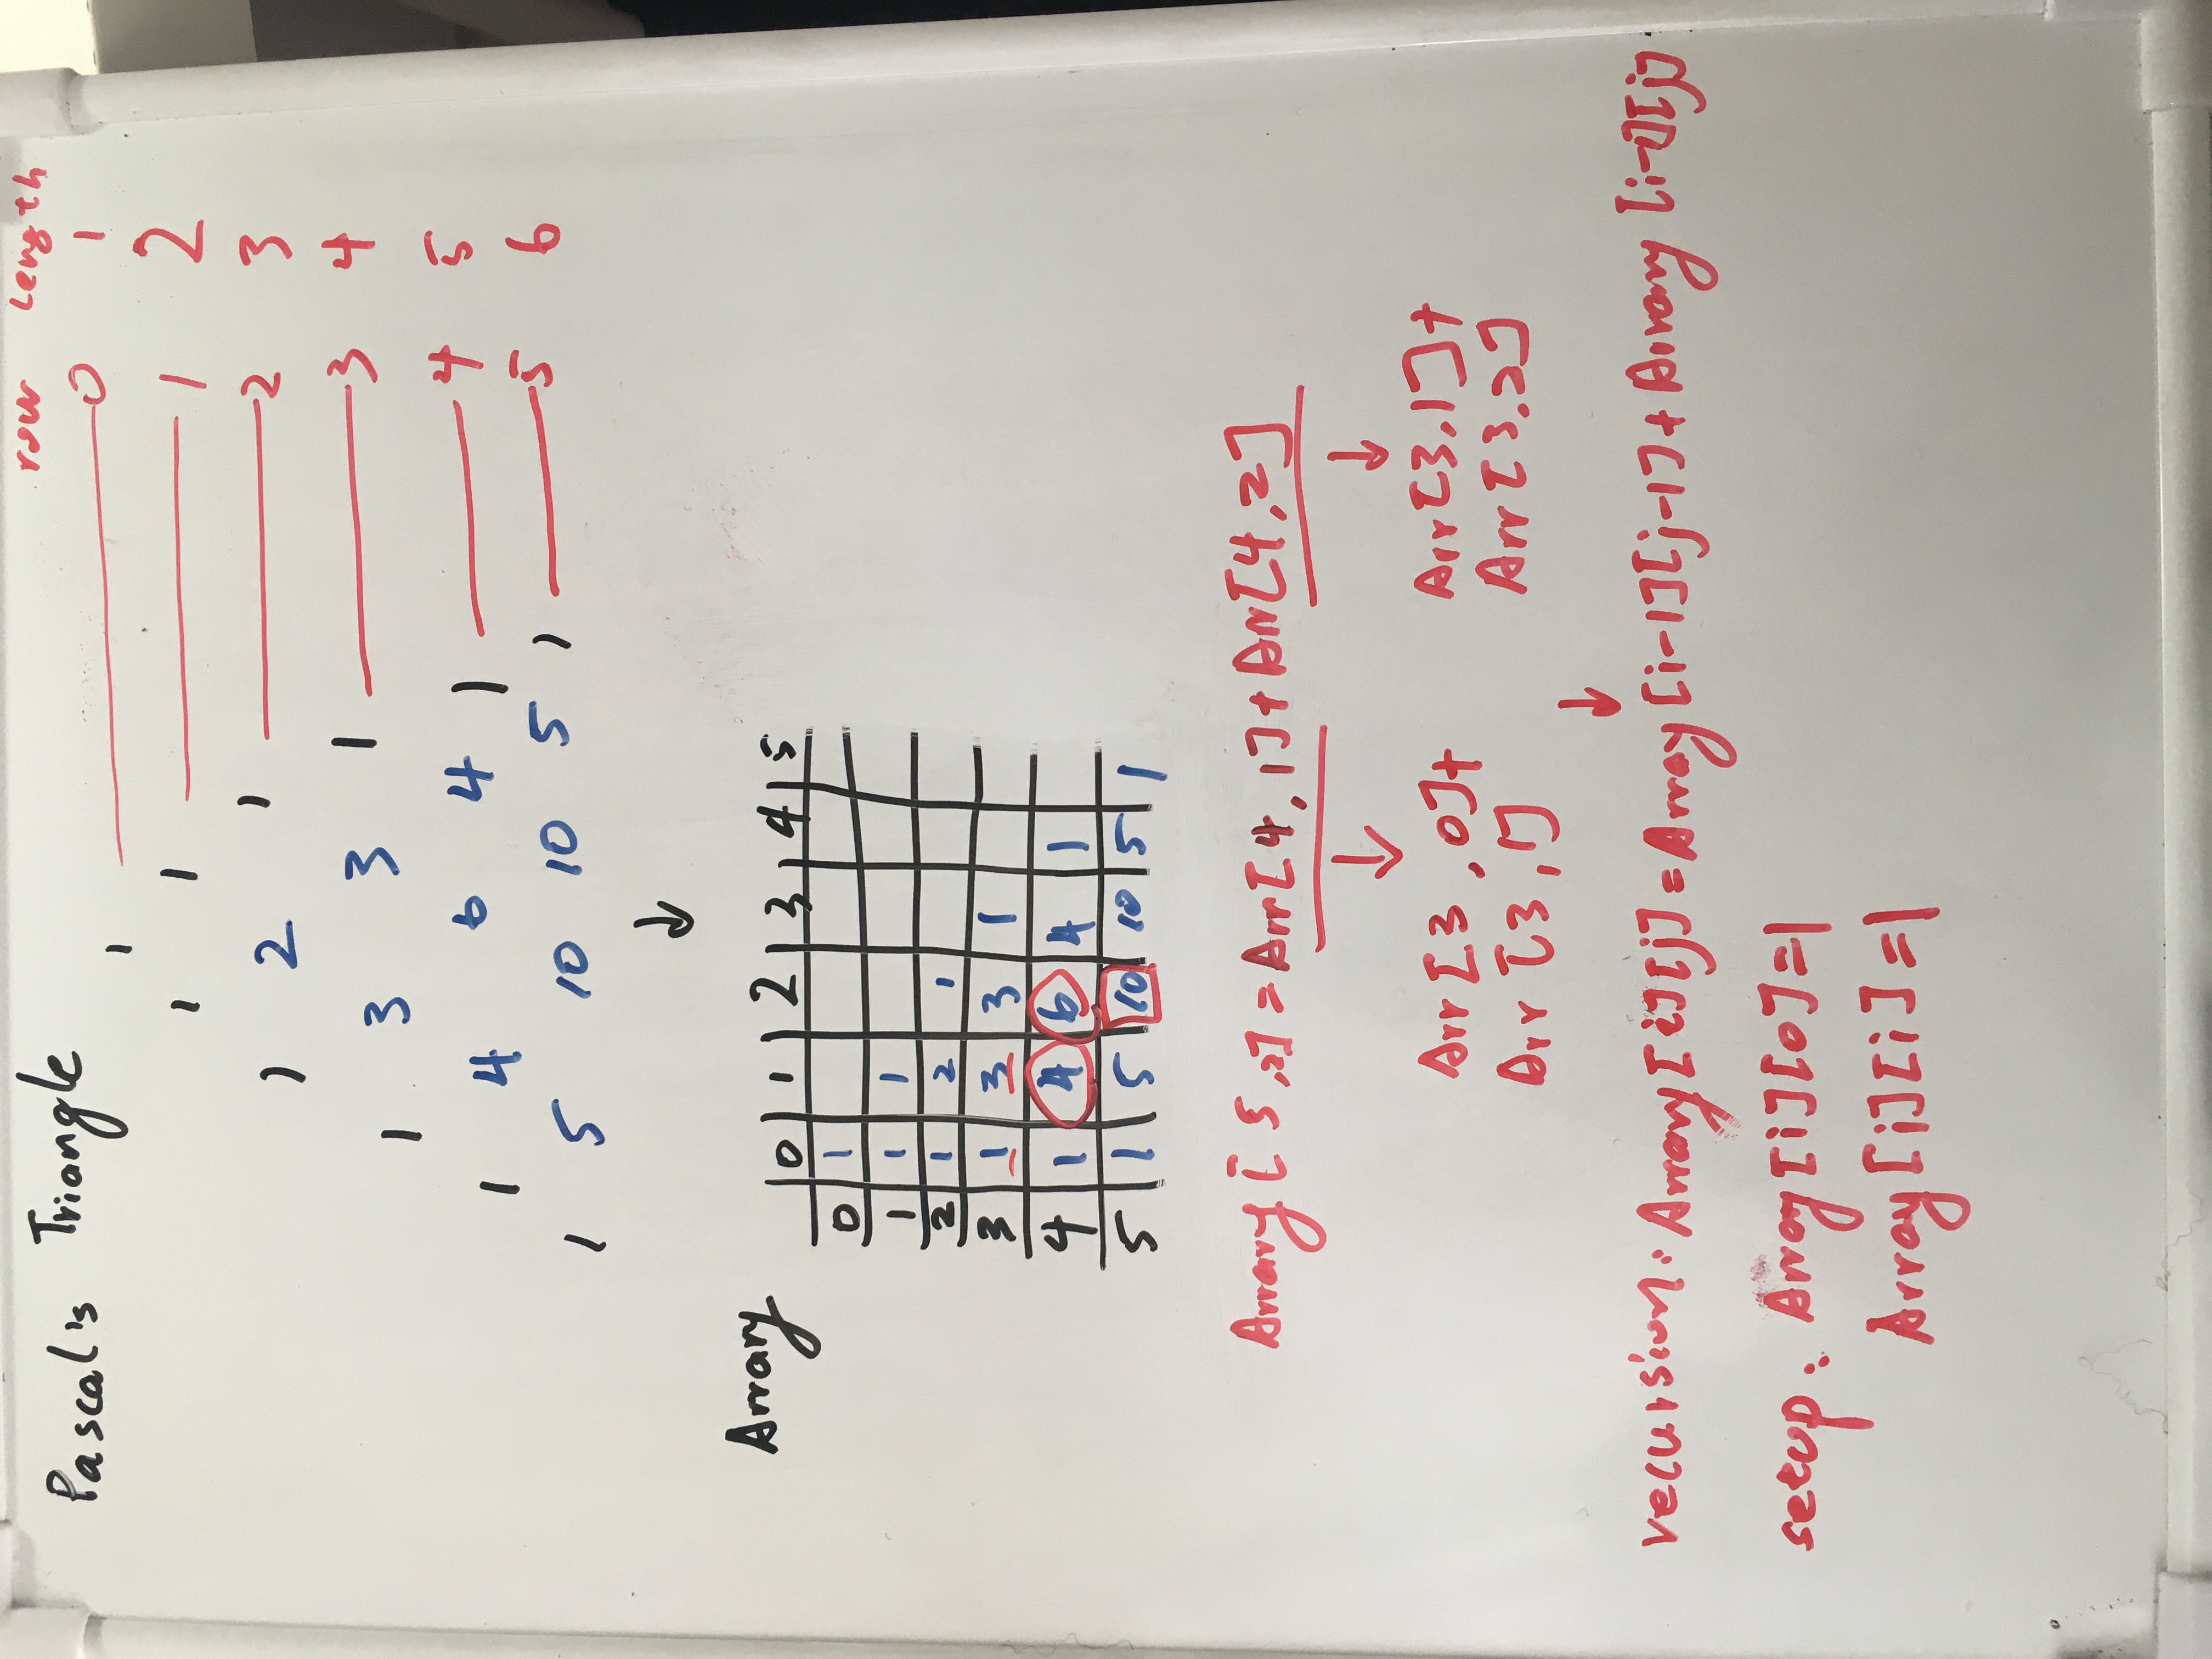 Pascal's Triangle row length
1 0 1
1 1 1 2
1 2 1 2 3
1 3 3 1 3 4
1 4 6 4 1 4 5
1 5 10 10 5 1 5 6
↓
Arrary
0 1 2 3 4 5
0 1
1 1 1
2 1 2 1
3 1 3 3 1
4 1 4 6 4 1
5 1 5 10 10 5 1
Arrary [5,2] = Arr[4,1] + Arr[4,2]
↓ ↓
Arr[3,0]+ Arr[3,1]+
Arr[3,1] Arr[3,2]
↓
recursion: Arrary[i][j] = Array[i-1][j-1] + Array[i-1][j]
setup: Array[i][0]=1
Array[i][i]=1